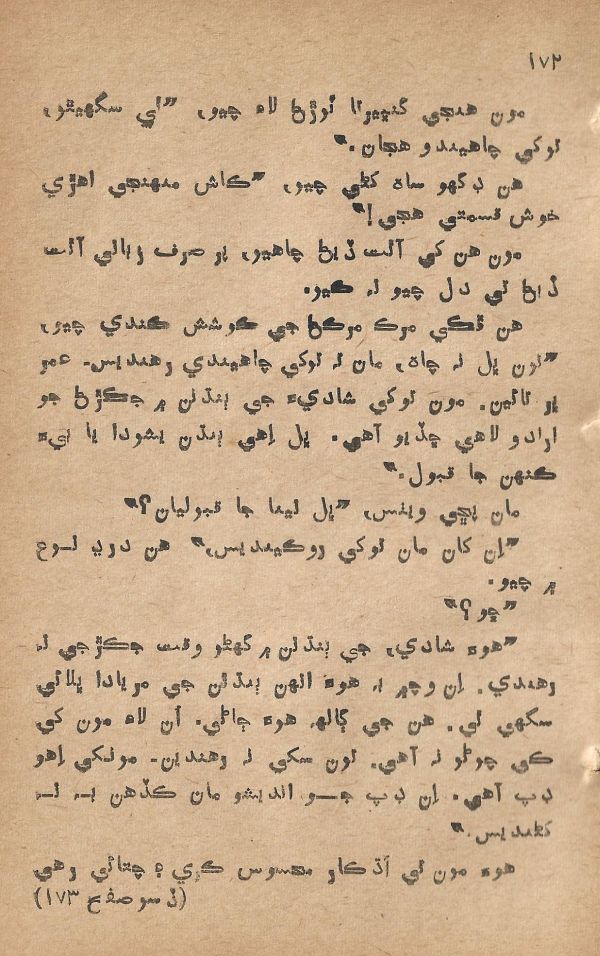 ١٧٢
مون هنجي گنڀيرتا ٽوڙڻ لاءِ چيو، ”اي سگهيٿو،
توکي چاهيندو هجان.“
هن ڊگهو ساهه کڻي چيو، ”ڪاش منهنجي اهڙي
خوش قسمتي هجي!“
مون هن کي آٿت ڏيڻ چاهيو، پر صرف زباني آٿت
ڏيڻ تي دل چيو نه ڪيو.
هن ڦڪي مرڪ مرڪڻ جي ڪوشش ڪندي چيو،
”تون ڀل نه چاهه، مان ته توکي چاهيندي رهنديس- عمر
ڀر تائين. مون توکي شاديءَ جي ٻنڌڻن ۾ جڪڙڻ جو
ارادو لاهي ڇڏيو آهي. ڀل اهي ٻنڌڻ يشودا يا ٻيءَ
ڪنهن جا قبول.“
مان پڇي ويٺس، ”ڀل نينا جا قبوليان؟“
”اِن کان مان توکي روڪينديس،“ هن دريد لوح
۾ چيو.
”ڇو؟“
”هوءَ شادي، جي ٻنڌڻن ۾ گهڻو وقت جڪڙجي نه
رهندي. اِن وچ ۾ به هوءَ انهن ٻنڌڻن جي مريادا ڀلائي
سگهي ٿي. هن جي ڳالهه هوءَ ڄاڻي. اُن لاءِ مون کي
ڪي چوڻو نه آهي. تون سکي نه رهندين- مونکي اِهو
ڊپ آهي. اِن ڊپ جـــو انديشو مان ڪڏهن بـه نـه
کڻنديس.“
هوءَ مون تي اَڌڪار محسوس ڪري ۽ چتائي رهي
(ڏسو صفحو ١٧٣)